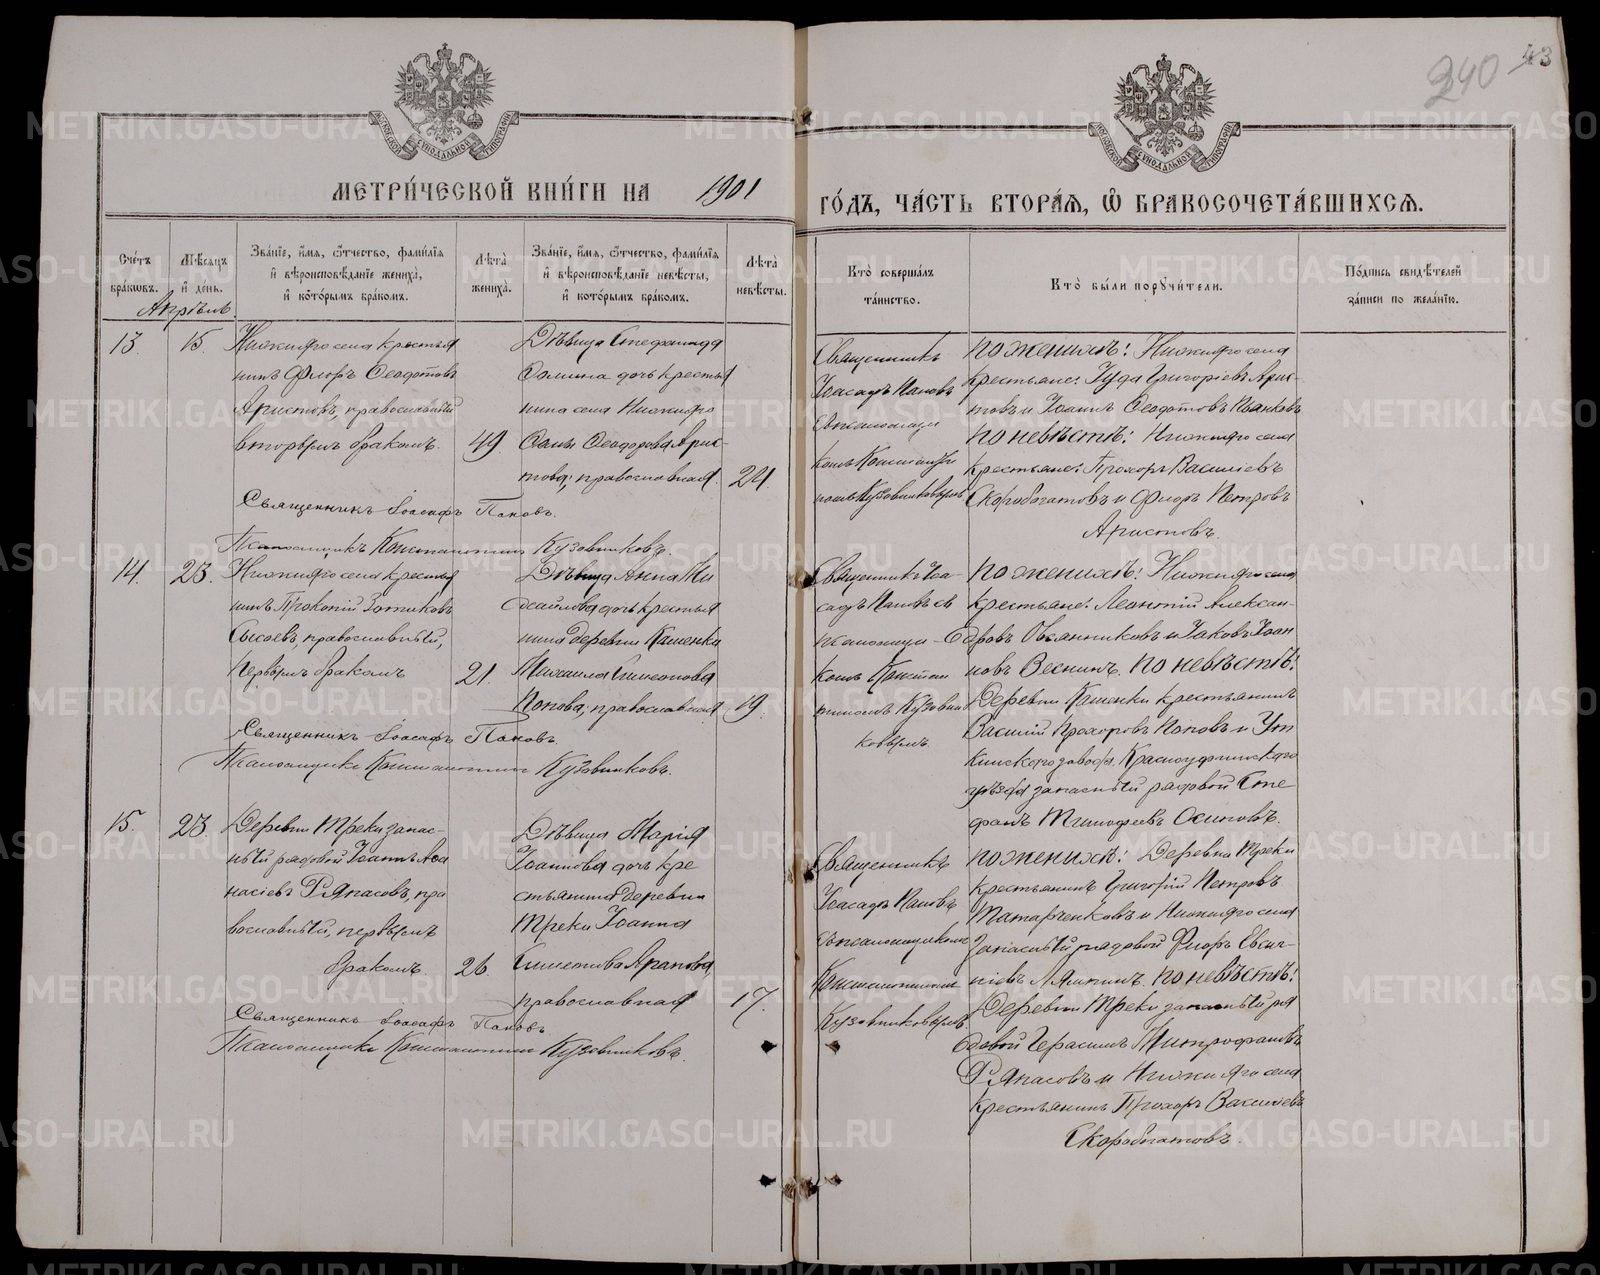 240 43
МЕТРИ́ЧЕСКОЙ КНИ́ГИ НА 1901 ГО́ДЪ, ЧА́СТЬ ВТОРА́Я, Ѽ БРАКОСОЧЕТА́ВШИХСЯ.
МОСКОВСКОЙ СѴНОДАЛЬНОЙ ТИПОГРАФІИ
МОСКОВСКОЙ СѴНОДАЛЬНОЙ ТИПОГРАФІИ
Сче́тъ бра́кѡвъ.
Мѣ́сяцъ и҆ де́нь.
Зва́нїе, и҆́мя, ѻ҆́тчество, фами́лїѧ
и҆ вѣроисповѣ́данїе жениха̀,
и҆ кото́рымъ бра́комъ.
Лѣ́та жениха̀.
Зва́нїе, и҆́мя, ѻ҆́тчество, фами́лїѧ
и҆ вѣроисповѣ́данїе невѣ́сты,
и҆ кото́рымъ бра́комъ.
Лѣ́та невѣ́сты.
Кто̀ соверша́лъ
та́инство.
Кто̀ бы́ли порꙋчи́тели.
По́дпись свидѣ́телей
за́писи по жела́нїю.
Апрѣль
13. 15.
Нижняго села крестья
нинъ Флоръ Ѳеодотовъ
Аристовъ, православный
вторымъ бракомъ. 49.
Дѣвица Стефанида
дочь кресть
нина села Нижняго
Ѳеодорова Арис-
това, православная. 24.
Священникъ
Іоасафъ Пановъ
съ псаломщи
комъ Констант
номъ Кузовниковымъ
По женихѣ: Нижняго села
крестьяне: Іуда Григоріевъ Арис-
товъ и Іоаннъ Ѳеодотовъ Иванковъ
По невѣстѣ: Нижняго села
крестьяне: Прохоръ Василіевъ
Скоробогатовъ и Флоръ Петровъ
Аристовъ.
Священникъ Іоасафъ Пановъ.
Псаломщикъ Константинъ Кузовниковъ.
14. 23.
Нижняго села крестья
нинъ Прокопій Зотиковъ
Сысоевъ, православный,
первымъ бракомъ 21.
Дѣвица Анна Ми
хайлова дочь крестья
нина деревни Каменки
Михаила Симеонова
Попова, православная 19.
Священникъ Іоа-
сафъ Пановъ съ
псаломщи-
комъ Констан
тиномъ Кузовни
ковымъ
По женихѣ: Нижняго села
крестьяне: Леонтій Алексан-
дровъ Овсянниковъ и Іаковъ Іоан
новъ Веснинъ. По невѣстѣ:
Деревни Каменки крестьянинъ
Василій Прохоровъ Поповъ и Ут
кинскаго завода Красноуфимскаго
уѣзда запасный рядовой Сте
фанъ Тимофеевъ Осиповъ.
Священникъ Іоасафъ Пановъ.
Псаломщикъ Константинъ Кузовниковъ.
15. 23.
Деревни Треки запас-
ный рядовой Іоаннъ Аѳа
насіевъ Рапасовъ, пра
вославный, первымъ
бракомъ. 26.
Дѣвица Марія
Іоаннова дочь кре
стьянина деревни
Треки Іоанна
Симеонова Арапова,
православная 17.
Священникъ
Іоасафъ Пановъ
съ псаломщикомъ
Константиномъ
Кузовниковымъ
По женихѣ: Деревни Треки
крестьянинъ Григорій Петровъ
Татарченковъ и Нижняго села
запасный рядовой Флоръ Евсиг-
ніевъ Лямпинъ. По невѣстѣ:
Деревни Треки запасный ря
довой Герасимъ Митрофановъ
Рапасовъ и Нижняго села
крестьянинъ Прохоръ Василіевъ
Скоробогатовъ.
Священникъ Іоасафъ Пановъ
Псаломщикъ Константинъ Кузовниковъ.
METRIKI.GASO-URAL.RU